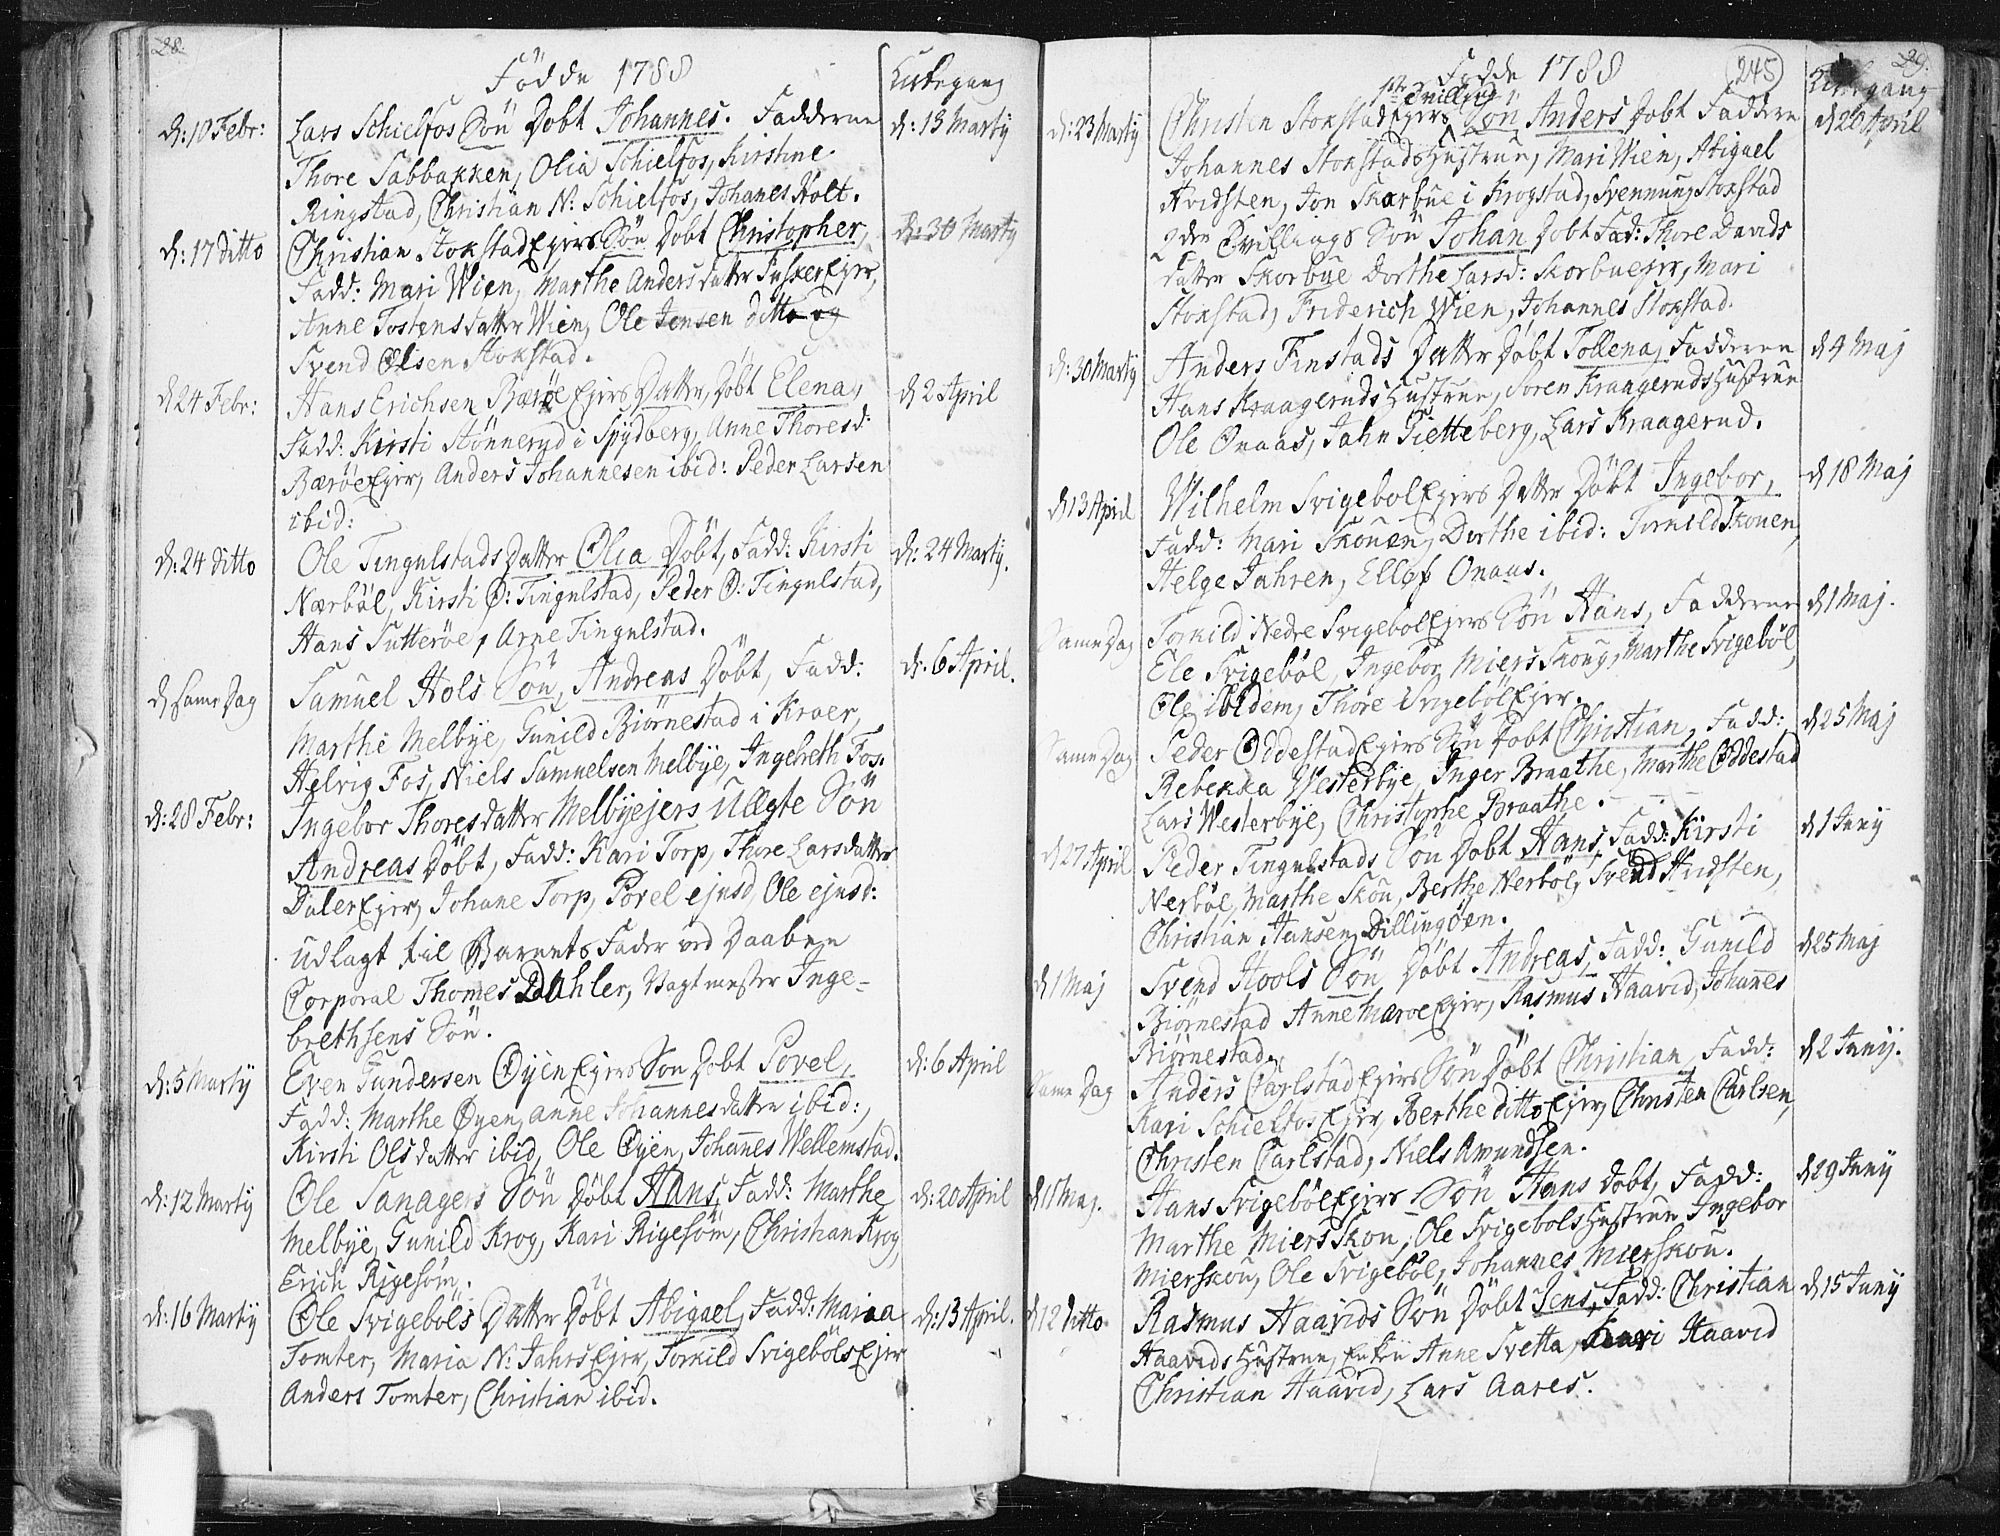 28.
Födde 1788
Kirkegang
d: 10 Febr: Lars Schielfos Sön Döbt Johannes. Fadderne d: 15 Martÿ
Thore Sabbakken, Olia Schielfos, Kirstine
Ringstad, Christian N: Schielfos, Johanes Holt.
d: 17 ditto Christian Stokstad Ejers Sön Döbt Christopher, d: 30 Martÿ
Fadd: Mari Wien, Marthe Anders datter Ejer,
Anne Tostens datter Wien, Ole Jensen ditto og
Svend Olsen Stokstad.
d 24 Febr: Hans Erichsen Bærøe Ejers Datter, Döbt Elena, d 2 April
Fadd: Kirsti Stønnerud i Spÿdberg, Anne Thoresd:
Bærøe Ejer, Anders Johannesen ibid: Peder Larsen
ibid:
d: 24 ditto Ole Tingulstads Datter Olia Döbt, Fadd: Kirsti d: 24 Martÿ.
Nærböl, Kirsti Ø: Tingulstad, Peder Ø: Tingulstad,
Hans Sutterøe, Arne Tingulstad.
d Same Dag Samuel Hols Sön, Andreas Döbt, Fadd: d: 6 April.
Marthe Melbÿe, Gunild Biørnestad i Kraer,
Helvig Fos, Niels Samuelsen Melbÿe, Ingebreth Fos.
d: 28 Febr: Ingebor Thores datter Melbÿejers Uægte Sön
Andreas Döbt, Fadd: Kari Torp, Thore Larsdatter
Daler Ejer, Johane Torp, Povel ejusd, Ole ejusd:
Udlagt til Barnets Fader ved Daaben
Corporal Thomes Dahler, Vagtmester Inge-
brethsens Sön.
d: 5 Martÿ Even Gundersen Øÿen Ejers Sön Döbt Povel, d: 6 April
Fadd: Marthe Øÿen, anne Johannesdatter ibid:,
Kirsti Olsdatter ibid, Ole Øÿen, Johannes Wellemstad.
d: 12 Martÿ Ole Sanagers Sön Döbt Hans, Fadd: Marthe d: 20 April
Melbÿe, Gunild Krog, Kari Rigesöm, Christian Krog,
Erich Rigesöm.
d: 16 Martÿ Ole Svigebøls Datter Döbt Abigael, Fadd: Maria d: 13 April.
Tomter, Maria N: Jahrs Ejer, Torkild Svigeböls Ejer
Anders Tomter, Christian ibid.
29.
245
Födde 1788
Kirkegang
1ste Tvilling
d: 23 Martÿ Christen Stokstad Ejers Sön Anders Döbt Faddere d 26 April
Johannes Stokstads Hustrue, Mari Wien, Abigael
Hvidsten, Jon Skarbue i Krogstad, Svennung Stokstad
2den Tvillings Sön Johan Döbt Fad: Thore Davids
datter Skorbue Dorthe Larsd: Skorbueejer, Mari
Stokstad, Friderich Wien, Johannes Stokstad.
d: 30 Martÿ Anders Finstads Datter Döbt Tollena, Fadderne d 4 Maj
Hans Kraageruds Hustrue, Soren Kraageruds Hustrue
Ole Onaas, Jahn Gietteberg, Lars Kraagerud.
d 13 April Wilhelm Svigebol Ejers Datter Döbt Ingebor, d 18 Maj
Fadd: Mari Skouen, Dorthe ibid: Torkild Skouen,
Helge Jahren, Ellef Onaas.
Same Dag Torkild Nedre Svigebol Ejers Sön Hans, Fadderne d 1 Maj.
Ele Svigeböl, Ingebor Miers Skoug, Marthe Svigeböl,
Ole ibidem, Thore Svigeböl Ejer.
Same Dag Peder Oddestad Ejers Sön Döbt Christian, Fadd: d 25 Maj
Rebekka Westerbÿe, Inger Braathe, Marthe Oddestad
Lars Westerbÿe, Christophe Braathe.
d 27 April Peder Tingulstads Sön Döbt Hans, Fadd: Kirsti d 1 Junÿ
Nerböl, Marthe Skou, Berthe Nerböl, Svend Hvidsten,
Christian Hansen Dillingöen.
d 1 Maj Svend Hools Sön, Döbt Andreas, Fadd: Gunild d 25 Maj
Biørnestad Anne Maroe Ejer, Rasmus Haavid, Johannes
Biørnestad.
Same Dag Anders Carlstad Ejers Sön Döbt Christian, Fadd: d 2 Junÿ.
Kari Schielfos Ejer, Berthe ditto Ejer, Christen Carlsen,
Christen Carlstad, Niels Amundsen.
d 11 Maj. Hans Svigeböl Ejers Sön Hans Döbt, Fadd: d 29 Junÿ
Marthe Miers Skou, Ole Svigebols Hustrue Ingebor
Mierskou, Ole Svigeböl, Johannes Mierskou.
d 12 ditto Rasmus Haavids Sön Döbt Jens, Fadd: Christian d 15 Junÿ
Haavids Hustrue, Enken Anne Svetta, Kari Haavid
Christian Haavid, Lars Aares.